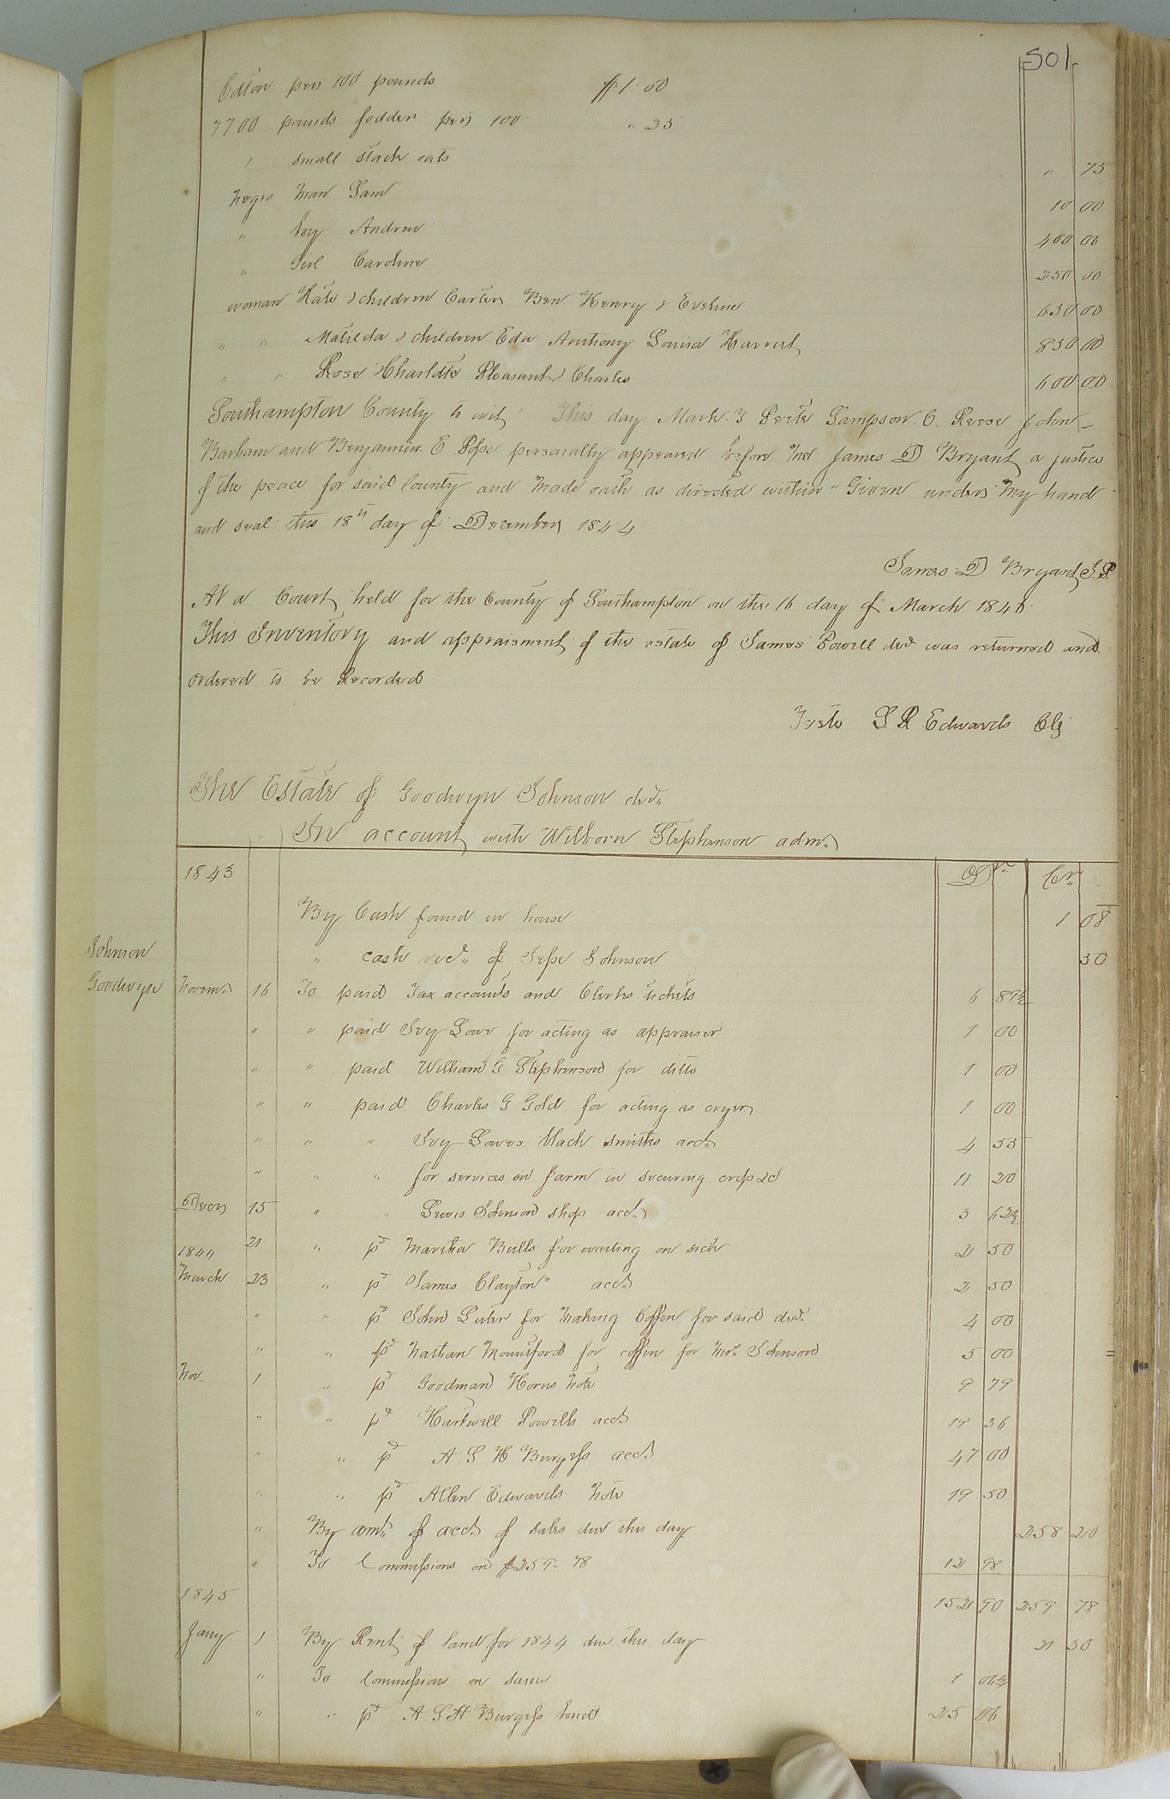 501
Cotton per 100 pounds $1 00
7700 pounds fodder per 100 " 35
1 small stack oats " 75
Negro Man Sam 10 00
" boy Andrew 400 00
" Girl Caroline 250 00
woman Kate & children Carter Ben Henry & Eveline 650 00
" " Matilda & children Eda Anthony Louisa Harriet 850 00
" " Rose Charlotte Pleasant & Charles 600 00
Southampton County to wit, This day Mark J Sampson C. Reese John
Barham and Benjamin E Pope personally appeared before me James D Bryant a justice
of the peace for said County and made oath as directed within " Given under my hand
and seal this 18th day of December 1844
James D Bryant J.P
At a Court held for the County of Southampton on the 16 day of March 1846
This Inventory and appraisment of the estate of James Powell decd was returned and
ordered to be Recorded
Teste L R Edwards Clk
The Estate of Goodwyn Johnson decd.
In account with Wilborn Stephenson adm.
1843 Dr. Cr.
By Cash found in house 1 08
Johnson " cash recd. of Jesse Johnson 50
Goodwyn Novem. 16 To paid Tax accounts and Clerks tickets 6 89½
" " paid Ivy Lowe for acting as appraiser 1 00
" " paid William G Stephenson for ditto 1 00
" " paid Charles G Gold for acting as cryer 1 00
" " " Ivy Lowes black smiths acct. 4 55
" " for services on farm in securing crop &c 11 20
Decer 15 " " Johnson shop acct. 3 62½
21 " pd Martha Bulls for waiting on sick 2 50
1844
March 23 " pd James Clayton" acct 2 50
" " pd John for making Coffin for said decd. 4 00
" " pd Nathan Mountford for coffin for Mrs. Johnson 5 00
Nov. 1 " pd Goodman Horns Note 9 79
" " pd Hartwell Powells acct 19 36
" " pd A S H Burgess acct. 47 00
" " pd Allen Edwards Note 19 50
" By amt. of acct of sales due this day 258 20
" To Commissions on $259. 78 12 98
1845 152 90 259 78
Jany 1 By Rent of land for 1844 due this day 21 50
" To Commission on same 1
" " pd A S H Burgess bond 25 06